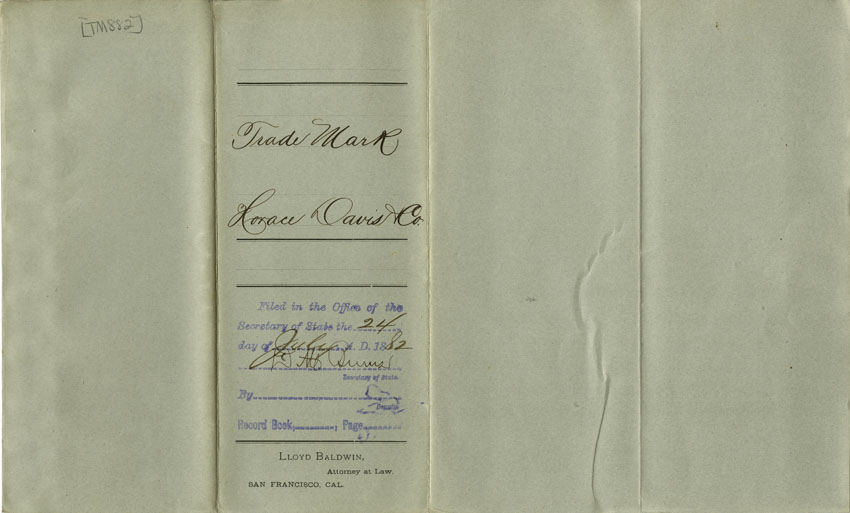 [TM882]
Trade Mark
Horace Davis & Co.
Filed in the Office of the
Secretary of State the 24
day of July A. D. 1882
Secretary of State.
By
Deputy
Record Book, , Page
LLOYD BALDWIN,
Attorney at Law,
SAN FRANCISCO, CAL.